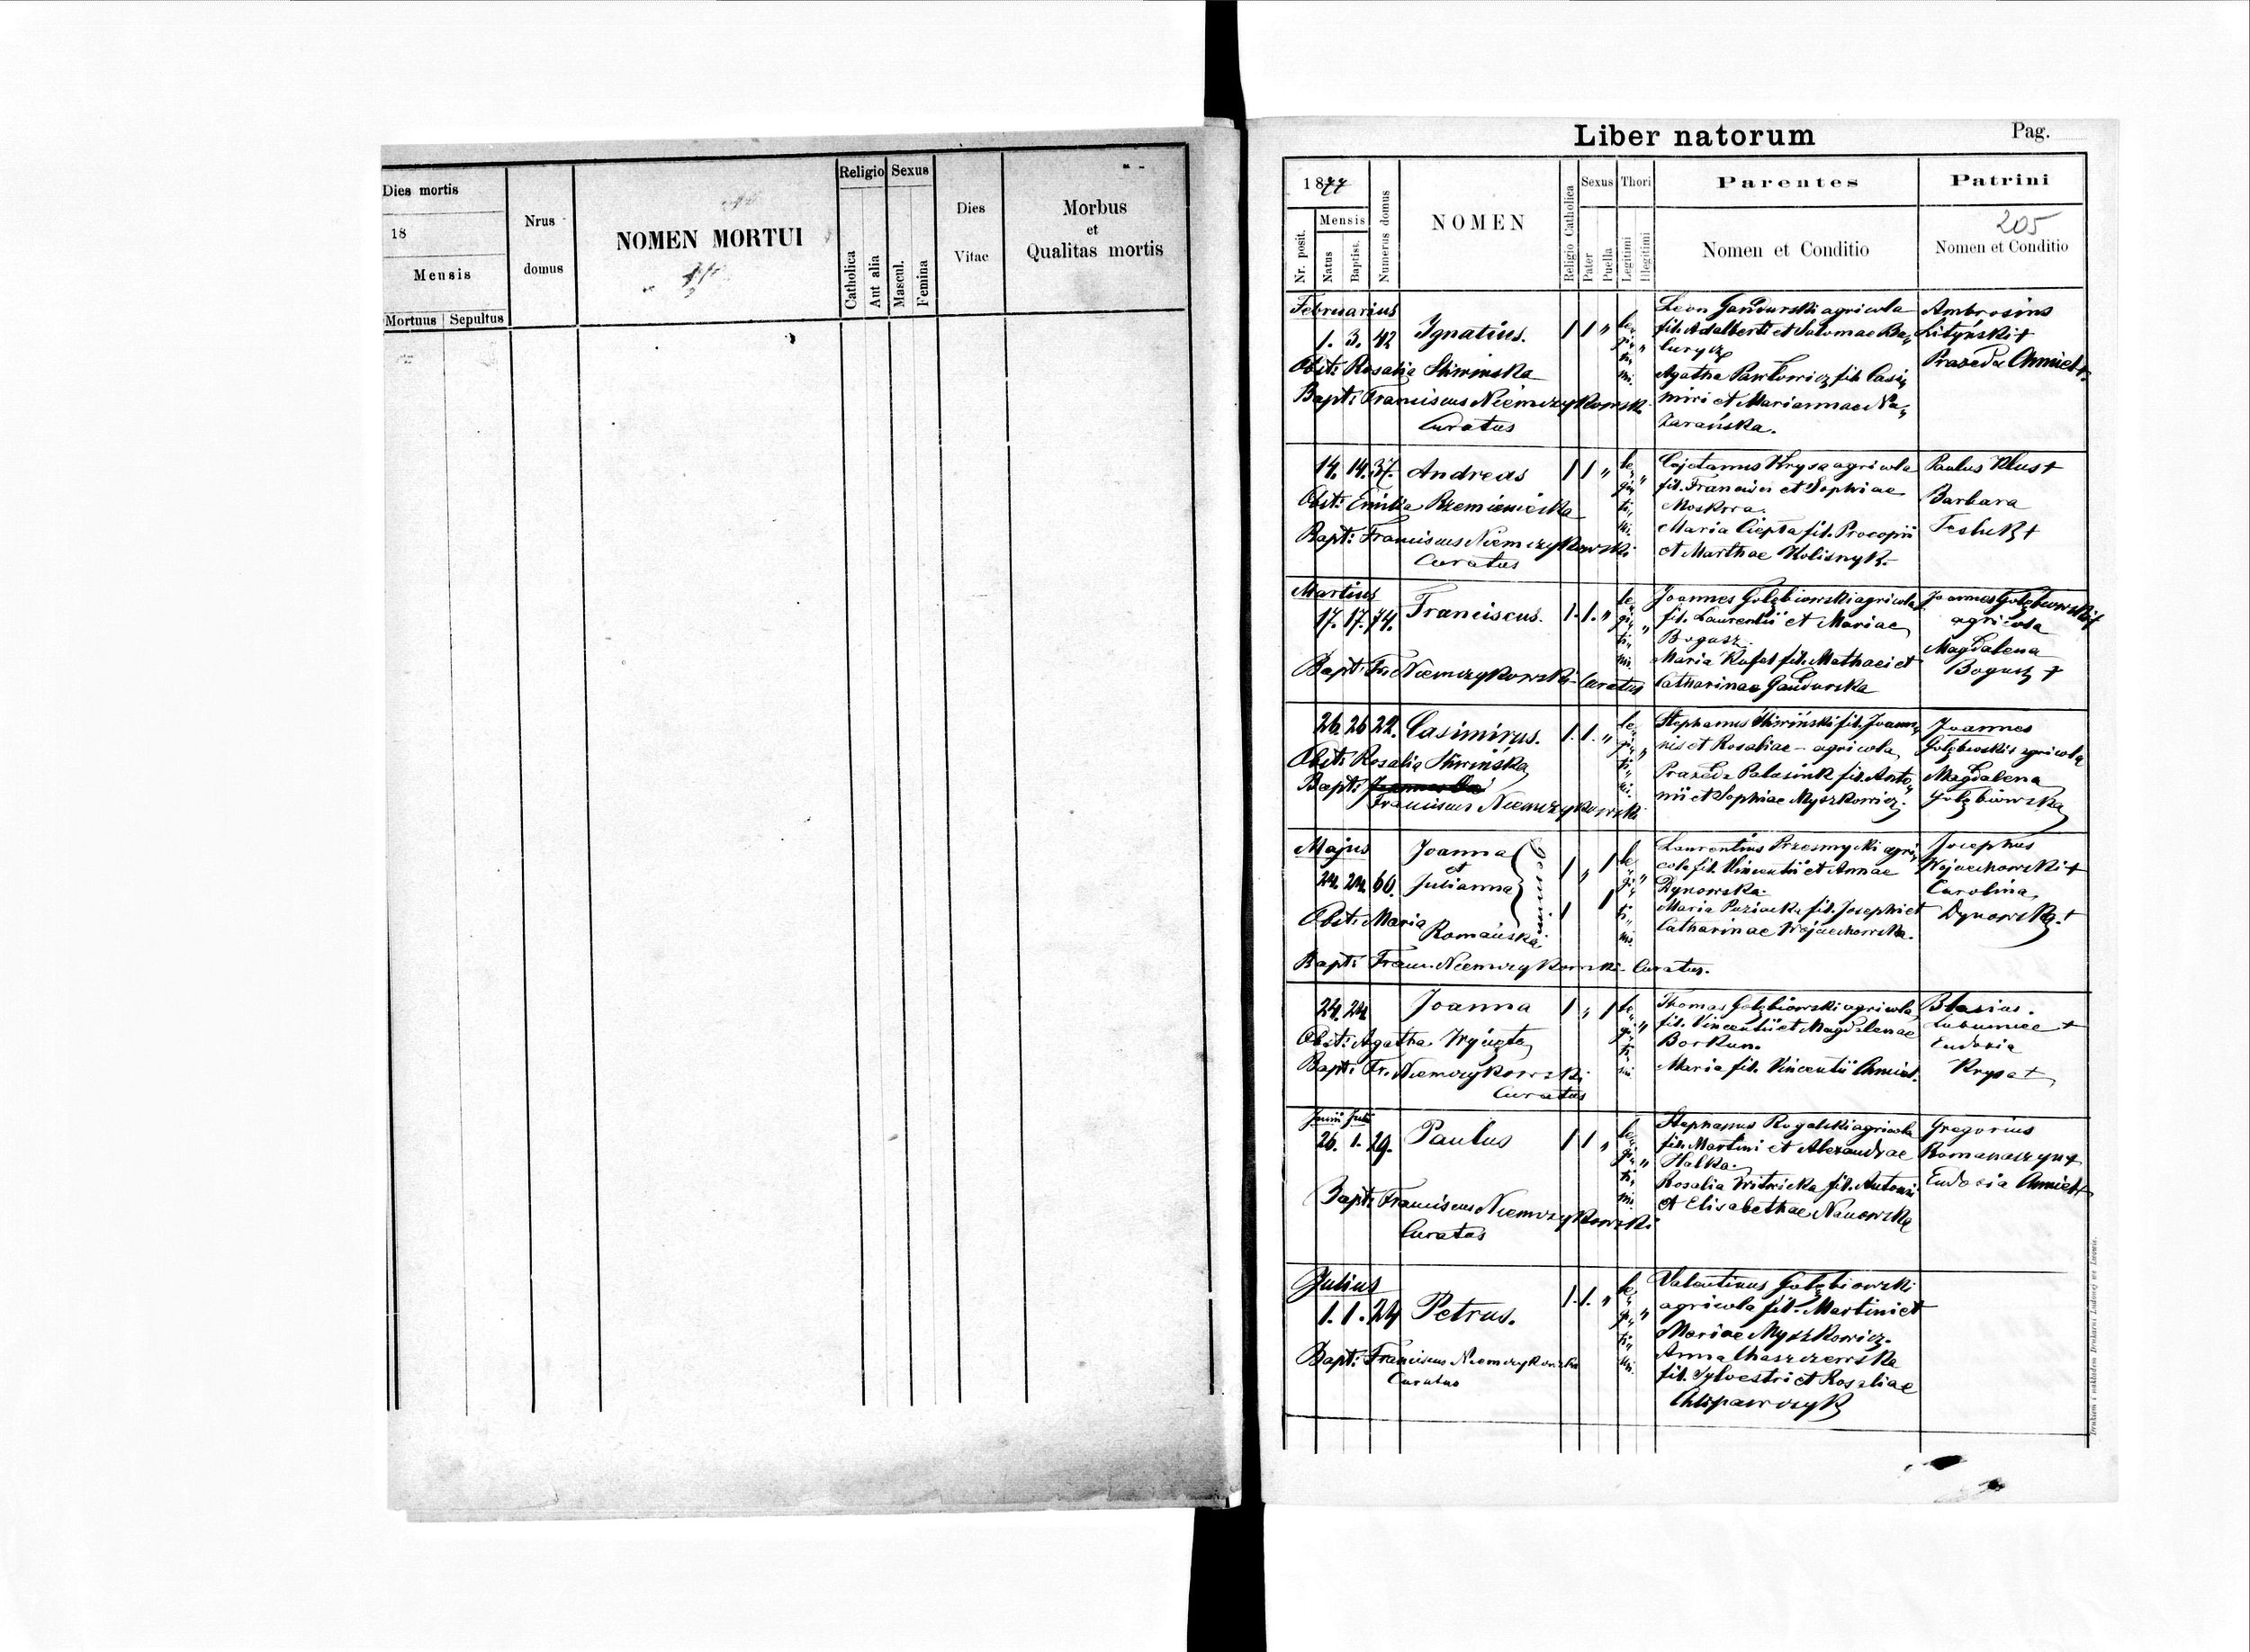 Dies mortis
18
Mensis
Mortuus Sepultus
Nrus
domus
NOMEN MORTUI
Religio
Catholica
Aut alia
Sexus
Mascul.
Femina
Dies
Vitae
Morbus
et
Qualitas mortis
Liber natorum
Pag.
1877
Nr. posit.
Mensis
Natus
Baptisi.
Numerus domus
NOMEN
Religio Catholica
Sexus
Pater
Puella
Thori
Legitimi
Illegitimi
Parentes
Nomen et Conditio
Patrini
205
Nomen et Conditio
Februarius
1. 3. 42 Ignatius. 1 1 "
Obst: Rosalia Śliwińska
Bapt: Franciscus Niemczykowski
Curatus
legitimi
Leon Gandurski agricola
fil. Adalberti et Salomae Ba„
Agatha Pawłowicz fil. Casi„
miri et Mariannae Na„
zarańska.
Ambrosius
Lityński +
Praxeda Chmiel +
14. 14. 37. Andreas 1 1 "
Obst: Emilia Rzemieniecka
Bapt: Franciscus Niemczykowski
Curatus
Cajetanus Krysa agricola
fil. Francisci et Sophiae
Maria Ciepła fil. Procopii
et Marthae Kolisnyk.
Paulus Klus +
Barbara
Tesluk +
Martius
17. 17. 74. Franciscus. 1. 1. "
Bapt: Fr. Niemczykowski - Curatus
Joannes Gołębiowski agricola
fil. Laurentii et Mariae
Bogusz.
Maria Rafał fil. Mathaei et
Catharinae Gandurska
Joannes Gołębiowski +
agricola
Magdalena
Bogusz +
26. 26 22. Casimirus. 1. 1. "
Obst: Rosalia Śliwińska
Bapt:
Franciscus Niemczykowski
Stephanus Śliwiński fil. Joan„
nis et Rosaliae - agricola
Praxeda Palasiuk fil. Anto„
nii et Sophiae Myszkowicz.
Joannes
Gołębiowski agricola
Magdalena
Gołębiowska
Majus
24. 24. 60. Joanna
et
Julianna
gemini
Obst: Maria
Romańska
Bapt: Franc. Niemczykowski - Curatus.
Laurentius Przesmycki agri„
cola fil. Vincentii et Annae
Dynowska.
Maria fil. Josephi et
Catharinae Wojciechowska.
Josephus
Wojciechowski +
Carolina
Dynowska. +
24. 24. Joanna 1 " 1
Obst: Agatha
Bapt: Fr. Niemczykowski
Curatus
Thomas Gołębiowski agricola
fil. Vincentii et Magdalenae
Borkun.
Maria fil. Vincentii Chmiel.
Blasius.
Eudoxia
Krysa +
Junii Julii
26. 1. 29. Paulus 1 1 "
Bapt: Franciscus Niemczykowski
Curatus
Stephanus Rogalski agricola
fil. Martini et Alexandrae
Halka.
Rosalia Witwicka fil. Antonii
et Elisabethae Nanowska
Gregorius
Romanaszyn +
Eudoxia Chmiel +
Julius
1. 1. 24 Petrus. 1. 1. "
Bapt: Franciscus Niemczykowski
Curatus
Valentinus Gołębiowski
agricola fil. Martini et
Mariae Myszkowicz.
Anna Chaszczewska
fil. Sylvestri et Rosaliae
Drukiem i nakładem Drukarni Ludowej we Lwowie.